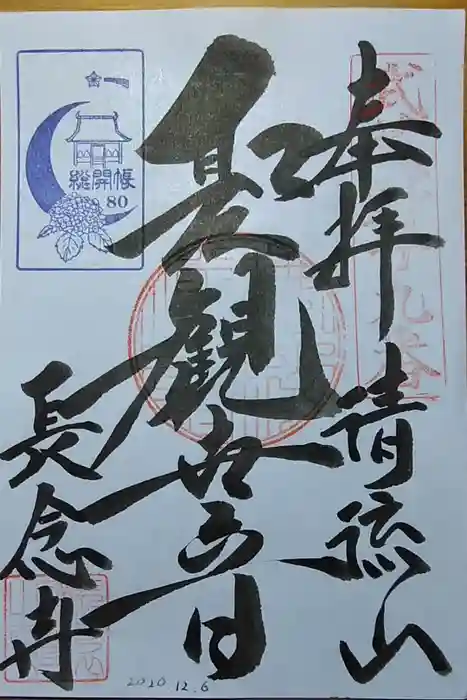 奉拝 請流山
聖観世音
長念寺
総開帳
80
2020 12.6